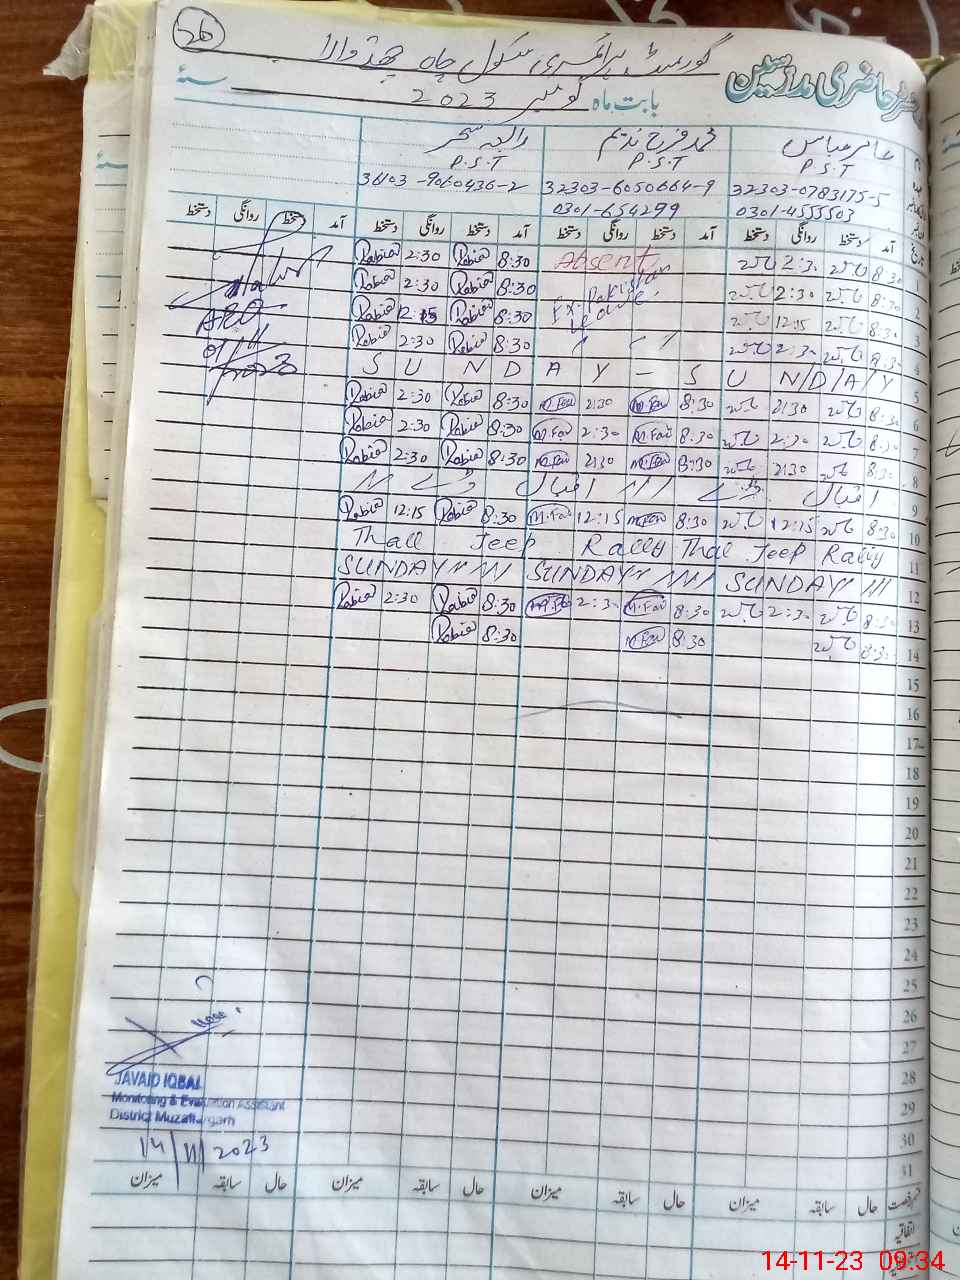 26
گورنمنٹ پرائمری سکول چاہ
رجسٹر حاضری مدرسین
بابت ماہ نومبر 2023 سنہ
عامر عباس محمد فرخ ندیم رابعہ سحر
P.S.T P.S.T P.S.T
32303-0783175-5 32303-6050664-9 36103-9060436-2
0301-4555503 0301-654299
آمد دستخط روانگی دستخط آمد دستخط روانگی دستخط آمد دستخط روانگی دستخط آمد دستخط روانگی دستخط
1 8:30 2:30 Absent 8:30 Rabia 2:30 Rabia
2 8:30 2:30 Ex-Pakistan Leave 8:30 Rabia 2:30 Rabia
3 8:30 12:15 8:30 Rabia 12:15 Rabia
4 8:30 2:30 8:30 Rabia 2:30 Rabia
S U N D A Y - S U N D A Y 5
6 8:30 2:30 8:30 M.Far 2:30 M.Far 8:30 Rabia 2:30 Rabia
7 8:30 2:30 8:30 M.Far 2:30 M.Far 8:30 Rabia 2:30 Rabia
8 8:30 2:30 8:30 M.Far 2:30 M.Far 8:30 Rabia 2:30 Rabia
9 اقبال ڈے اقبال ڈے
10 8:30 12:15 8:30 M.Far 12:15 M.Far 8:30 Rabia 12:15 Rabia
Thall Jeep Rally Thal Jeep Rally 11
SUNDAY SUNDAY SUNDAY 12
13 8:30 2:30 8:30 M.Far 2:30 M.Far 8:30 Rabia 2:30 Rabia
14 8:30 8:30 M.Far 8:30 Rabia
15
16
17
18
19
20
21
22
23
24
25
26
27
28
29
30
31
JAVAID IQBAL
Monitoring & Evaluation Assistant
District Muzaffargarh
14/11/2023
حال سابقہ میزان حال سابقہ میزان حال سابقہ میزان حال سابقہ میزان
اتفاقیہ
14-11-23 09:34